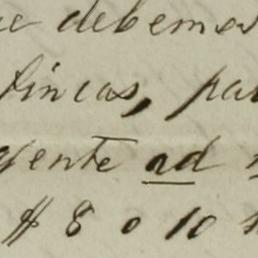 ue debemos
fincas, pa
gente ad
$ 8 o 10